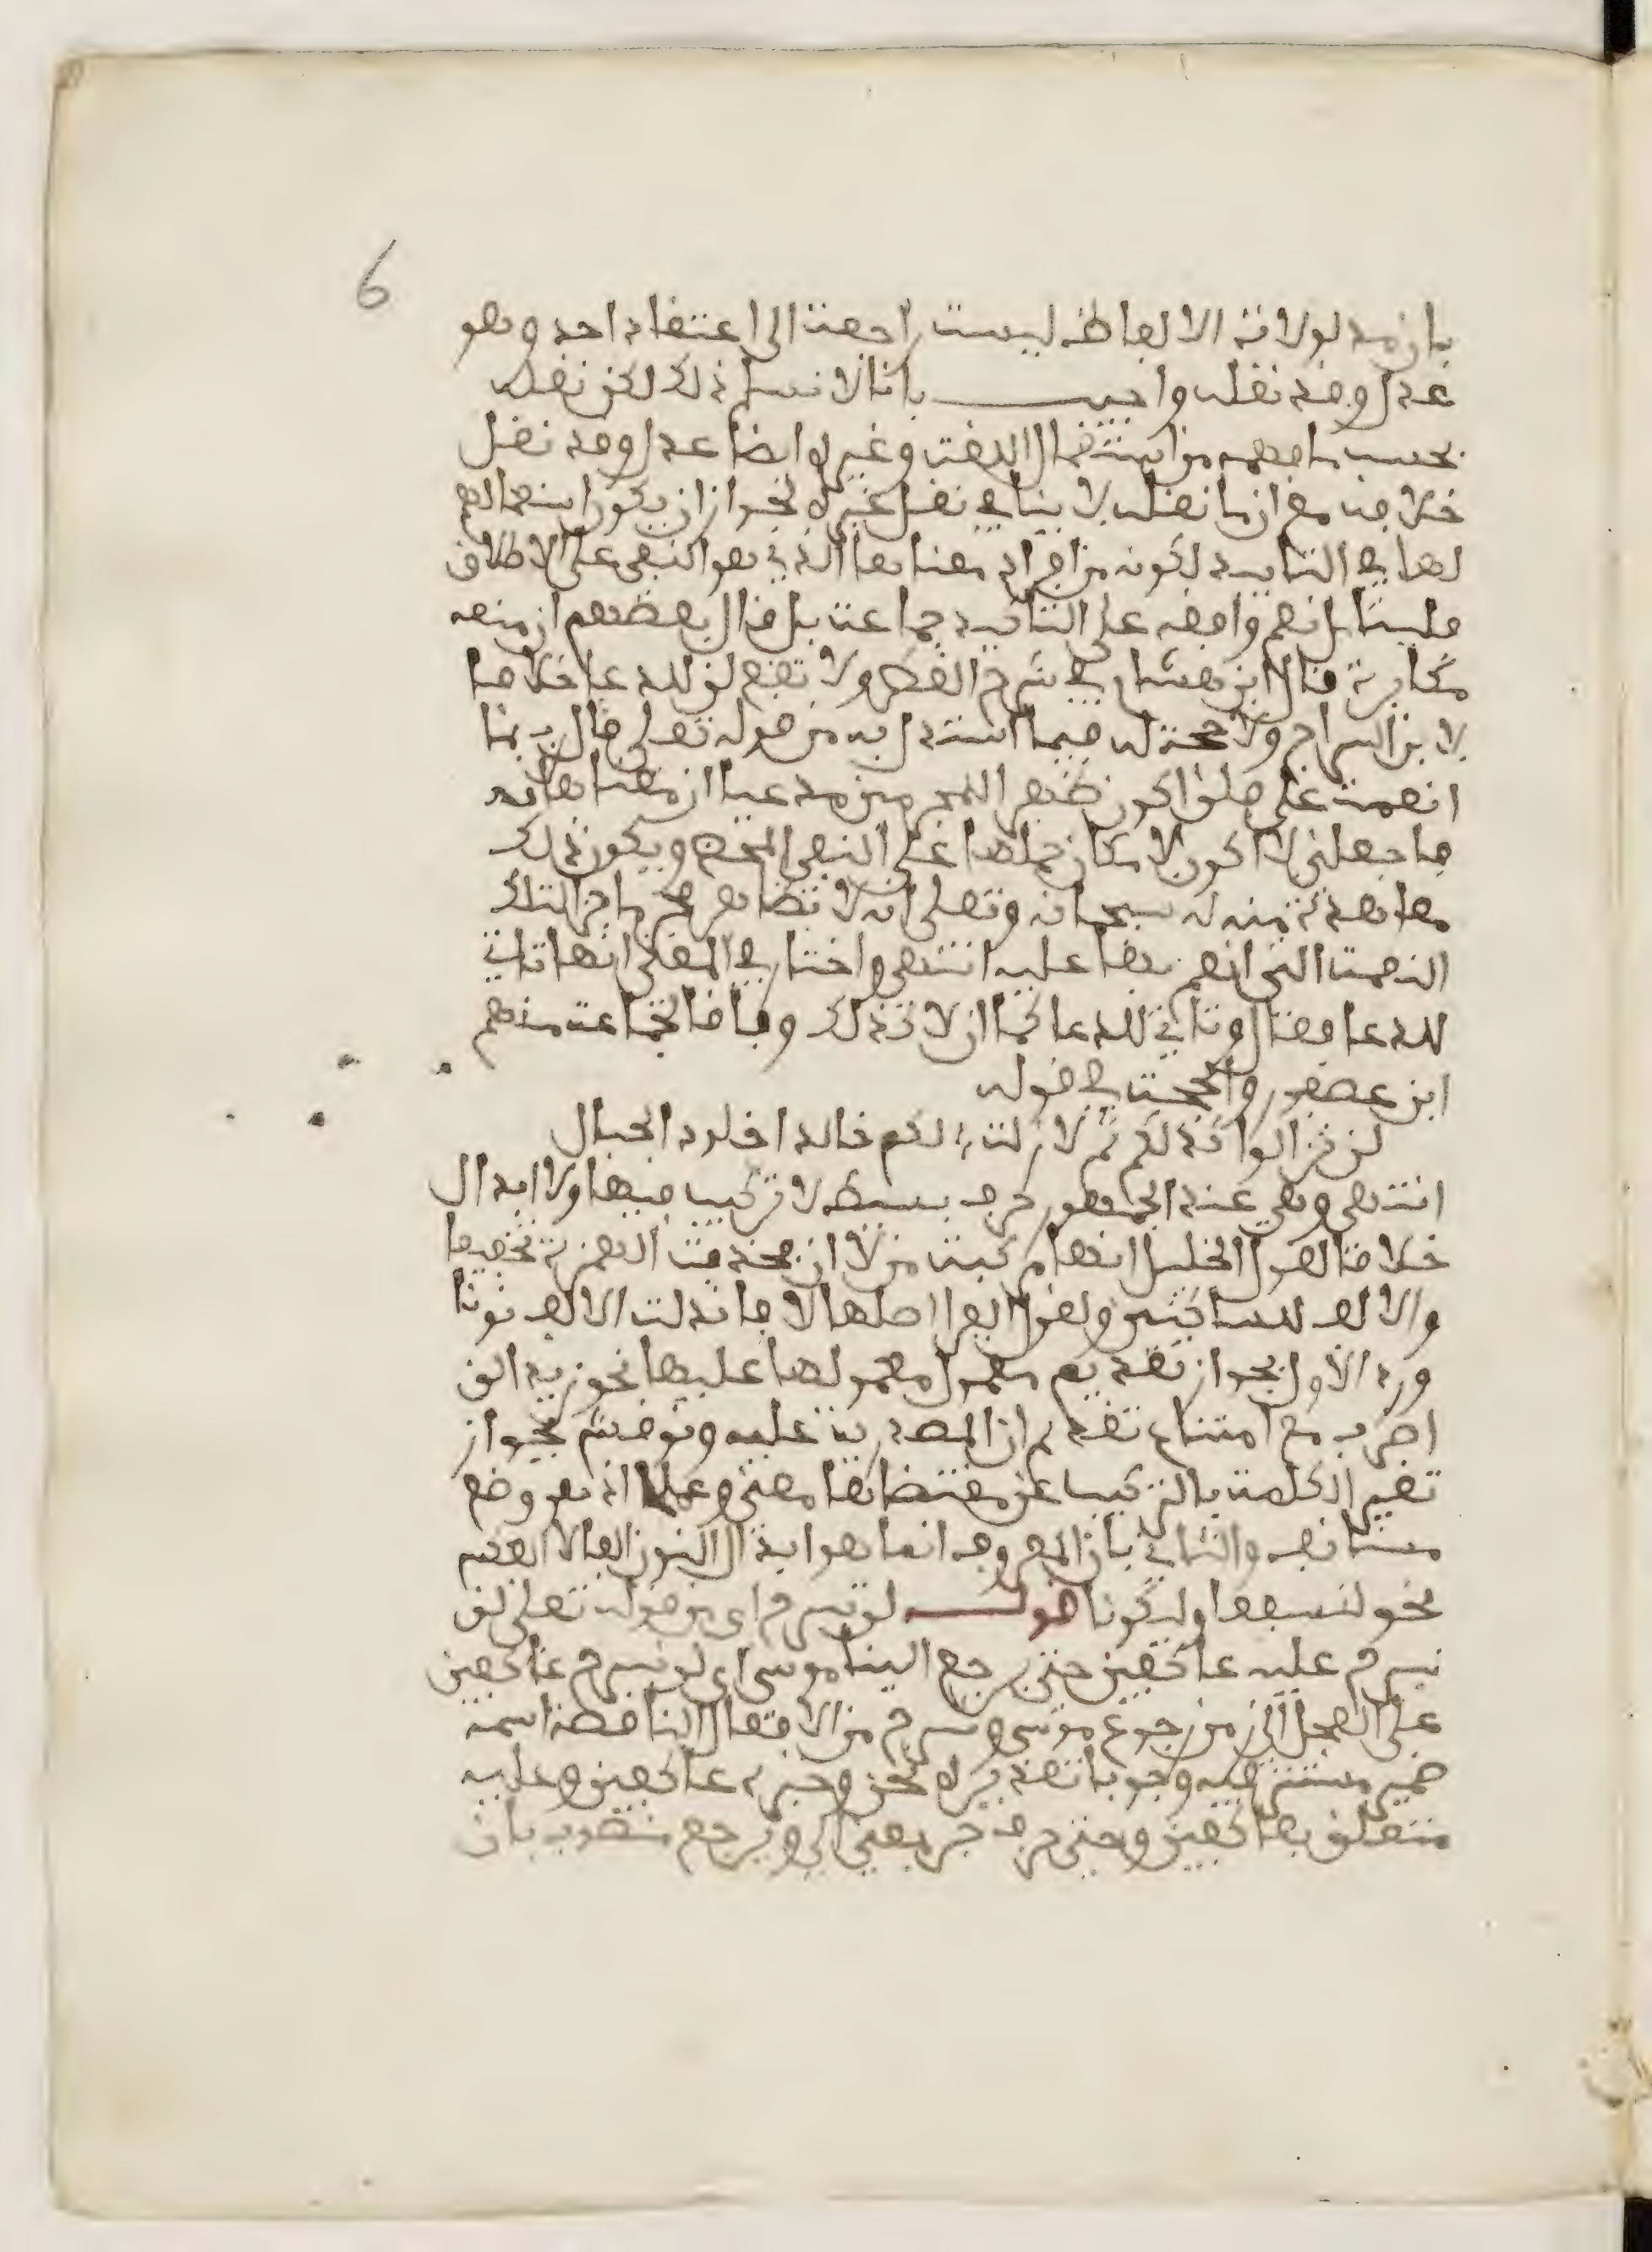 6
بان مدلولات الالفاظ ليست راجعة الى اعتقاد احد وهو
عدل وقد نقله واجيب بانا لا نسلم ذلك لكن نقله
بحسب ما فهمه من استعمال اللغة وغيره ايضا عدل وقد نقل
خلافه مع ان ما نقله لا ينافي نقل غيره لجواز ان يكون استعمالهم
لها في التابيد لكونه من افراد معناها الذي هو النفي على الاطلاق
قلت بل نعم وافقه على التابيد جماعة بل قال بعضهم ان منعه
مكابرة قال ابن هشام في شرح القطر ولا تقع لن للدعا خلافا
لابن السراج ولا حجة له فيما استدل به من قوله تعلى قال رب بما
انعمت علي فلن اكون ظهيرا للمجرمين مدعيا ان معناها
فاجعلني لا اكون لامكان حملها على النفي المحض ويكون ذلك
معاهدة منه لله سبحانه وتعلى ان لا يظاهر مجرما جزا لتلك
النعمة التي انعم بها عليه انتهى واختار في المغني انها تاتي
للدعا فقال وتاتي للدعا كما ان لا كذلك وفاقا لجماعة منهم
ابن عصفور والحجة في قوله
لن تزالوا كذلكم ثم لا زلت لكم خالدا خلود الجبال
انتهى وهي عند الجمهور حرف بسيط لا تركيب فيها ولا ابدال
خلافا لقول الخليل انها مركبة من لا ان فحذفت الهمزة تخفيفا
والالف للساكنين ولقول الفرا اصلها لا فابدلت الالف نونا
ورد الاول بجواز تقديم معمول معمولها عليها نحو زيدا لن
اضرب مع امتناع تقديم ان المصدرية عليه ونوقش بجواز
تغير الكلمة بالتركيب عن مقتضاها معنى وعملا اذ هو وضع
مستانف والثاني بان المعروف انما هو ابدال النون الفا لا العكس
نحو لنسفعا وليكونا قوله لن نبرح اي من قوله تعلى لن
نبرح عليه عاكفين حتى يرجع الينا موسى اي لن نبرح عاكفين
على العجل الى زمن رجوع موسى ونبرح من الافعال الناقصة اسمه
ضمير مستتر فيه وجوبا تقديره نحن وخبره عاكفين وعليه
متعلق بعاكفين وحتى حرف جر بمعنى الى ويرجع منصوب بان